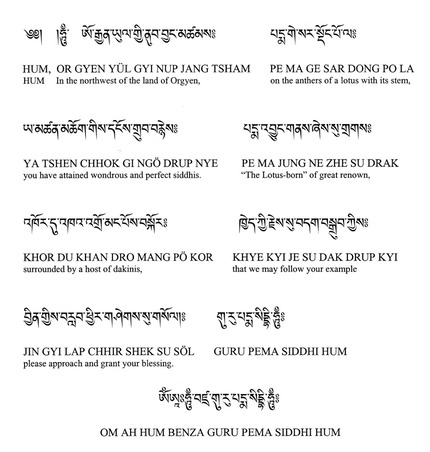 ༄༅། །ཧཱུྂ༔ ཨོ་རྒྱན་ཡུལ་གྱི་ནུབ་བྱང་མཚམས༔ པདྨ་གེ་སར་སྡོང་པོ་ལ༔
HUM, OR GYEN YÜL GYI NUP JANG TSHAM PE MA GE SAR DONG PO LA
HUM In the northwest of the land of Orgyen, on the anthers of a lotus with its stem,
ཡ་མཚན་མཆོག་གིས་དངོས་གྲུབ་བརྙེས༔ པདྨ་འབྱུང་གནས་ཞེས་སུ་གྲགས༔
YA TSHEN CHHOK GI NGÖ DRUP NYE PE MA JUNG NE ZHE SU DRAK
you have attained wondrous and perfect siddhis. “The Lotus-born” of great renown,
འཁོར་དུ་འཁའ་འགྲོ་མང་པོས་བསྐོར༔ ཁྱེད་ཀྱི་རྗེས་སུ་བདག་བསྒྲུབ་ཀྱིས༔
KHOR DU KHAN DRO MANG PÖ KOR KHYE KYI JE SU DAK DRUP KYI
surrounded by a host of dakinis, that we may follow your example
བྱིན་གྱིས་བརླབ་ཕྱིར་གཤེགས་སུ་གསོལ༔ གུ་རུ་པདྨ་སིདྡྷི་ཧཱུྂ༔
JIN GYI LAP CHHIR SHEK SU SÖL GURU PEMA SIDDHI HUM
please approach and grant your blessing.
ༀ་ཨཱཿ་ཧཱུྂ་བཛྲ་གུ་རུ་པདྨ་སིདྡྷི་ཧཱུྂ༔
OM AH HUM BENZA GURU PEMA SIDDHI HUM